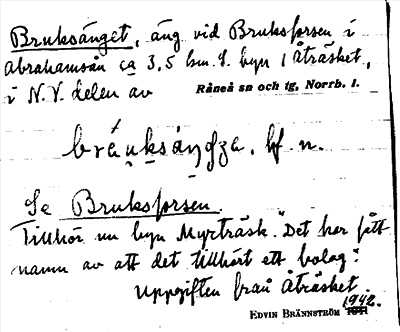 Bruksänget, äng vid Bruksforsen i
Abrahamsån ca 3,5 km. f. byn i Åträsket,
i N.V. delen av Råneå sn och tg, Norrb. l.
bŕäuksáŋʒa, bf n.
Se Bruksforsen.
Tillhör nu byn Myrträsk. "Det har fått
namn av att det tillhört ett bolag".
Uppgiften från Åträsket.
1942.
EDVIN BRÄNNSTRÖM 1941